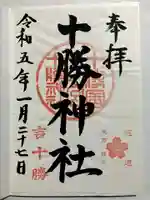 奉拝
十勝神社
令和五年一月二十七日